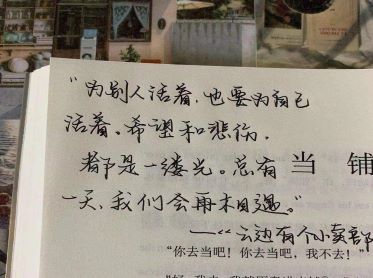 “为别人活着，也要为自己
活着。希望和悲伤，
都是一缕光。总有
当 铺
一天，我们会再相遇。”
——《云边有个小卖部
“你去当吧！你去当吧，我不去！”